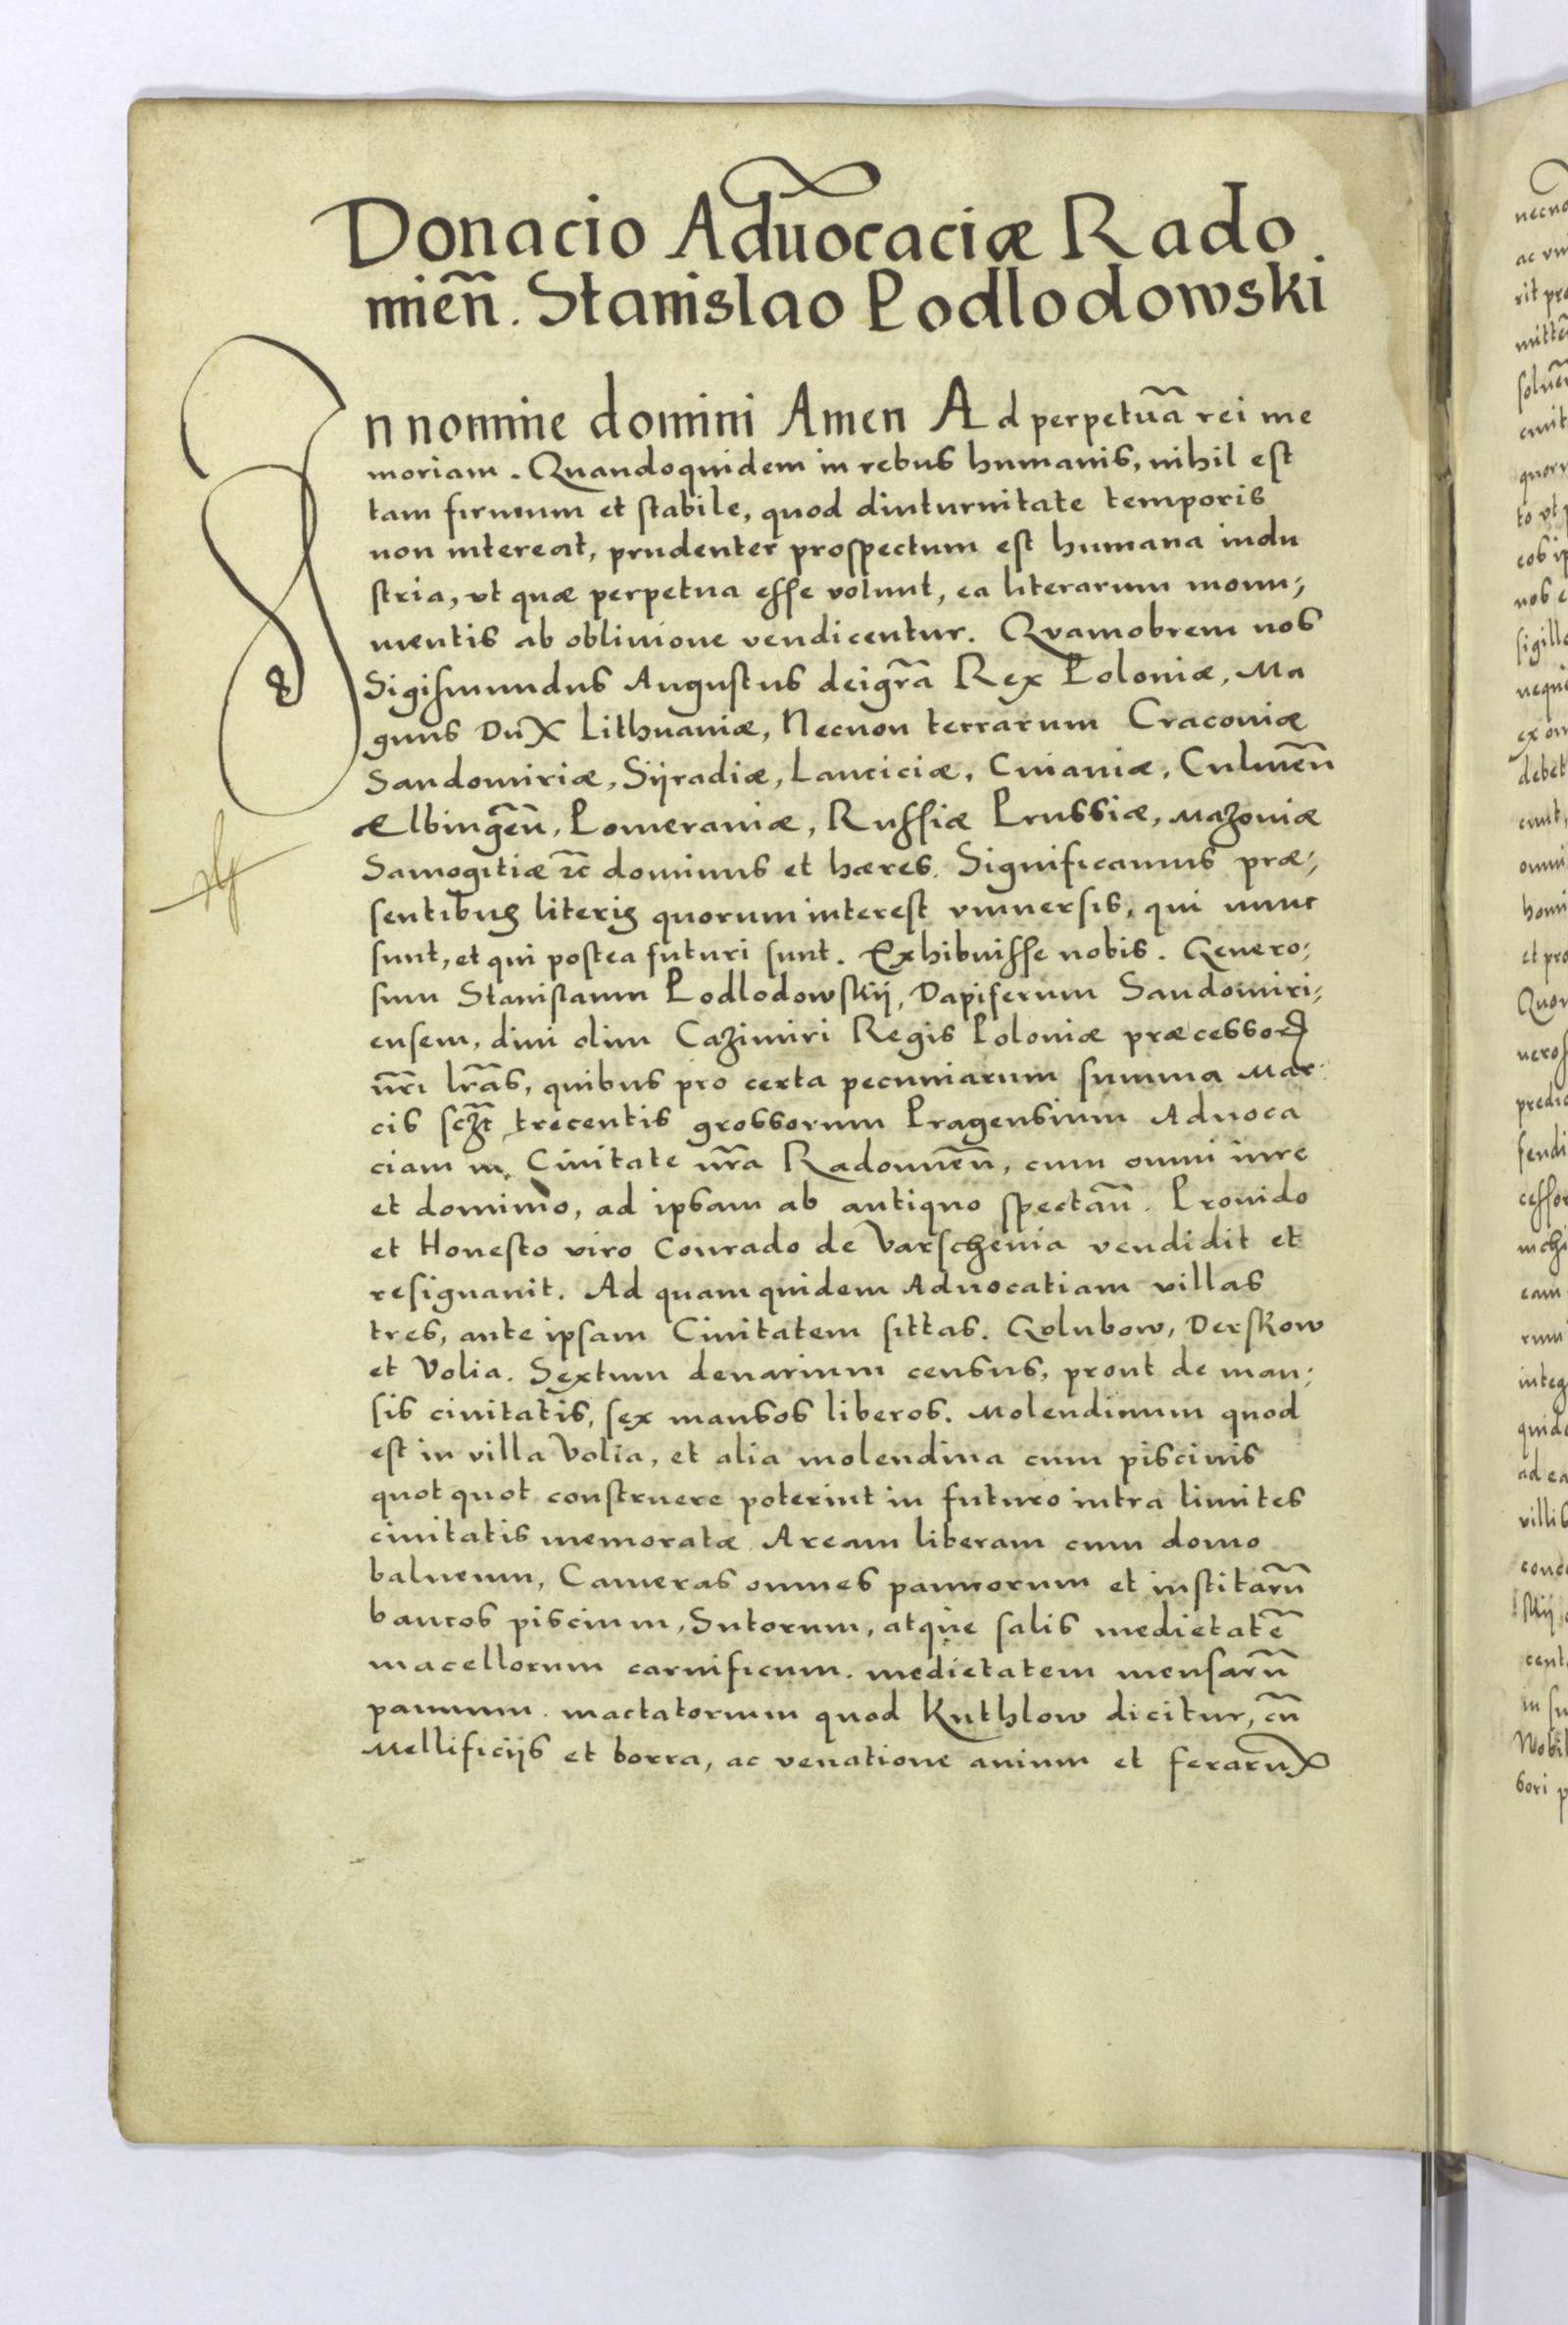 Donacio Aduocaciæ Rado
mień. Stanislao Podlodowski
In nomine domini Amen Ad perpetuā rei me
moriam. Quandoquidem in rebus humanis, nihil est
tam firmum et stabile, quod diuturnitate temporis
non intereat, prudenter prospectum est humana indu
stria, vt quæ perpetua esse volunt, ea literarum monu;
mentis ab obliuione vendicentur. Quamobrem nos
Sigismundus Augustus dei gr̄a Rex Poloniæ, Ma
gnus Dux Lithuaniæ, Necnon terrarum Cracouiæ
Sandomiriæ, Sijradiæ, Lanciciæ, Cuiauiæ, Culmen̄
Ælbingen̄, Pomeraniæ, Russiæ Prussiæ, Mazouiæ
Samogitiæ ꝛc̄ dominus et hæres. Significamus præ;
sentibus literis quorum interest vniuersis, qui nunc
sunt, et qui postea futuri sunt. Exhibuisse nobis. Genero;
sum Stanislaum Podlodowskij, Dapiferum Sandomiri;
ensem, diui olim Cazimiri Regis Poloniæ præcessoris
nr̄i lr̄as, quibus pro certa pecuniarum summa Mar
cis scꝫt̄ trecentis grossorum Pragensium Aduoca
ciam in Ciuitate nr̄a Radomien̄, cum omni iure
et dominio, ad ipsam ab antiquo spectan̄. Prouido
et Honesto viro Conrado de Varschenia vendidit et
resignauit. Ad quam quidem Aduocatiam villas
tres, ante ipsam Ciuitatem sittas. Golubow, Derskow
et Volia. Sextum denarium census, prout de man;
sis ciuitatis, sex mansos liberos. Molendinum quod
est in villa Volia, et alia molendina cum piscinis
quotquot construere poterint in futuro intra limites
ciuitatis memoratæ. Aream liberam cum domo
balneum, Cameras omnes pannorum et institarū
bancos piscium, Sutorum, atque salis medietatē
macellorum carnificum. medietatem mensarū
panum. mactatorium quod Kuthlow dicitur, cū
Mellificijs et borra, ac venatione auium et ferarum